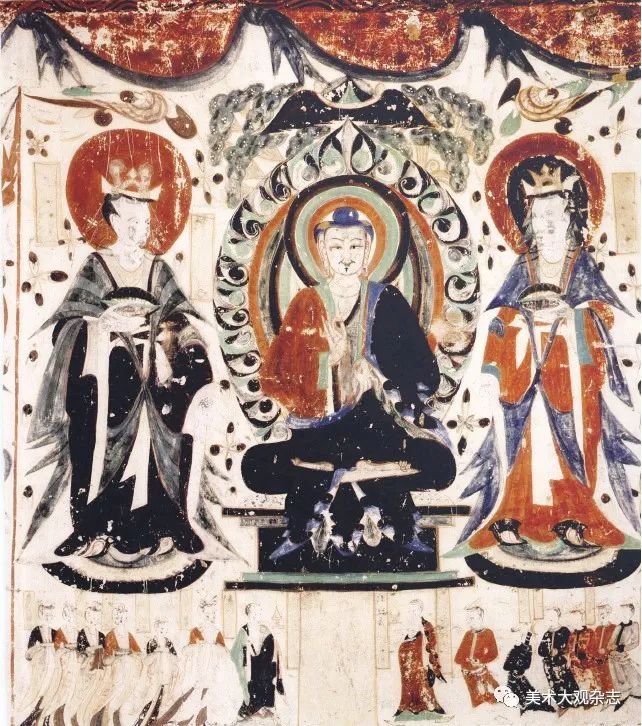 美术大观杂志